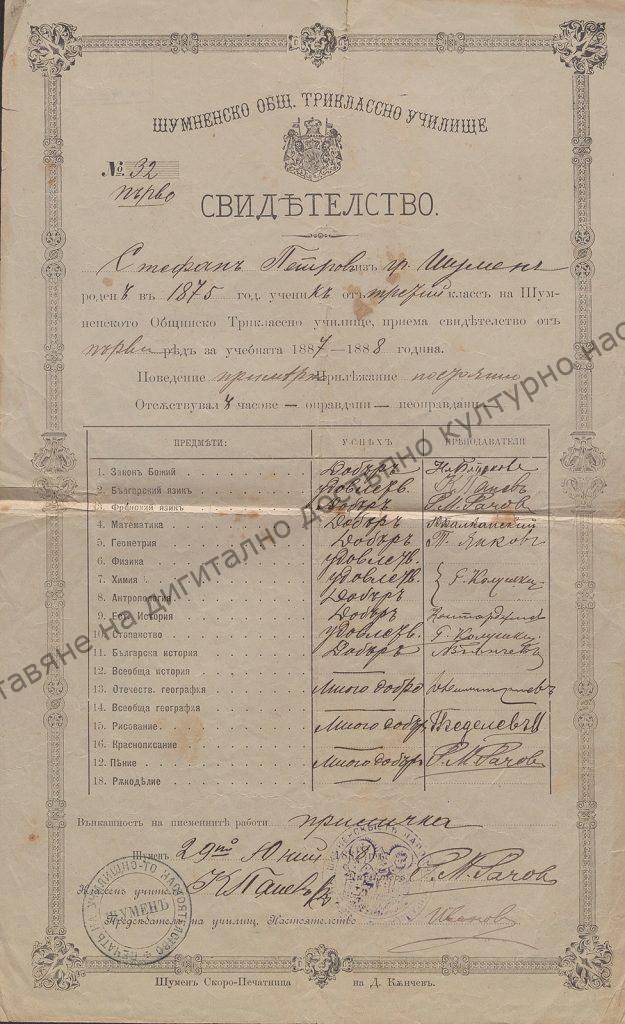 ШУМНЕНСКО ОБЩ. ТРИКЛАССНО УЧИЛИЩЕ
№ 32
първо
СВИДѢТЕЛСТВО.
Стефанъ Петровъ изъ гр. Шуменъ
роденъ въ 1875 год. ученикъ отъ третий классъ на Шум-
ненското Общинско Триклассно училище, приема свидѣтелство отъ
първи рѣдъ за учебната 1887—1888 година.
Поведение примѣрно Прилѣжание постоянно
Отсѫтствувалъ часове — оправдани — неоправдани
ПРЕДМѢТИ: УСПѢХЪ ПРѢПОДАВАТЕЛИ
1. Законъ Божий Добъръ
2. Българский язикъ удовлетв. К. Пашевъ
3. Френский язикъ Добъръ Р. М. Рачов
4. Математика Добъръ
5. Геометрия Добъръ Т. Янковъ
6. Физика удовлетв.
7. Химия удовлетв.
8. Антропология Добъръ
9. Ест. История Добъръ
10. Стопанство удовлетв.
11. Българска история Добъръ
12. Всеобща история
13. Отечеств. география Много добъръ
14. Всеобща география
15. Рисование Много добъръ
16. Краснописание
12. Пѣние Много добъръ Р. М. Рачов
18. Рѫкодѣлие
Вънкашность на писменнитѣ работи прилична
Шуменъ 29ий Юний 188
Классенъ учитель К. Пашевъ Р. М. Рачов
Прѣдсѣдатель на училищ. Настоятелство Иванов
ПЕЧАТЬ НА УЧИЛИЩНО-ТО НАСТОЯТЕЛСТВО
ШУМЕНЪ
Шуменъ Скоро-Печатница на Д. Кѫнчевъ.
тавяне на дигитално достъпно културно нас